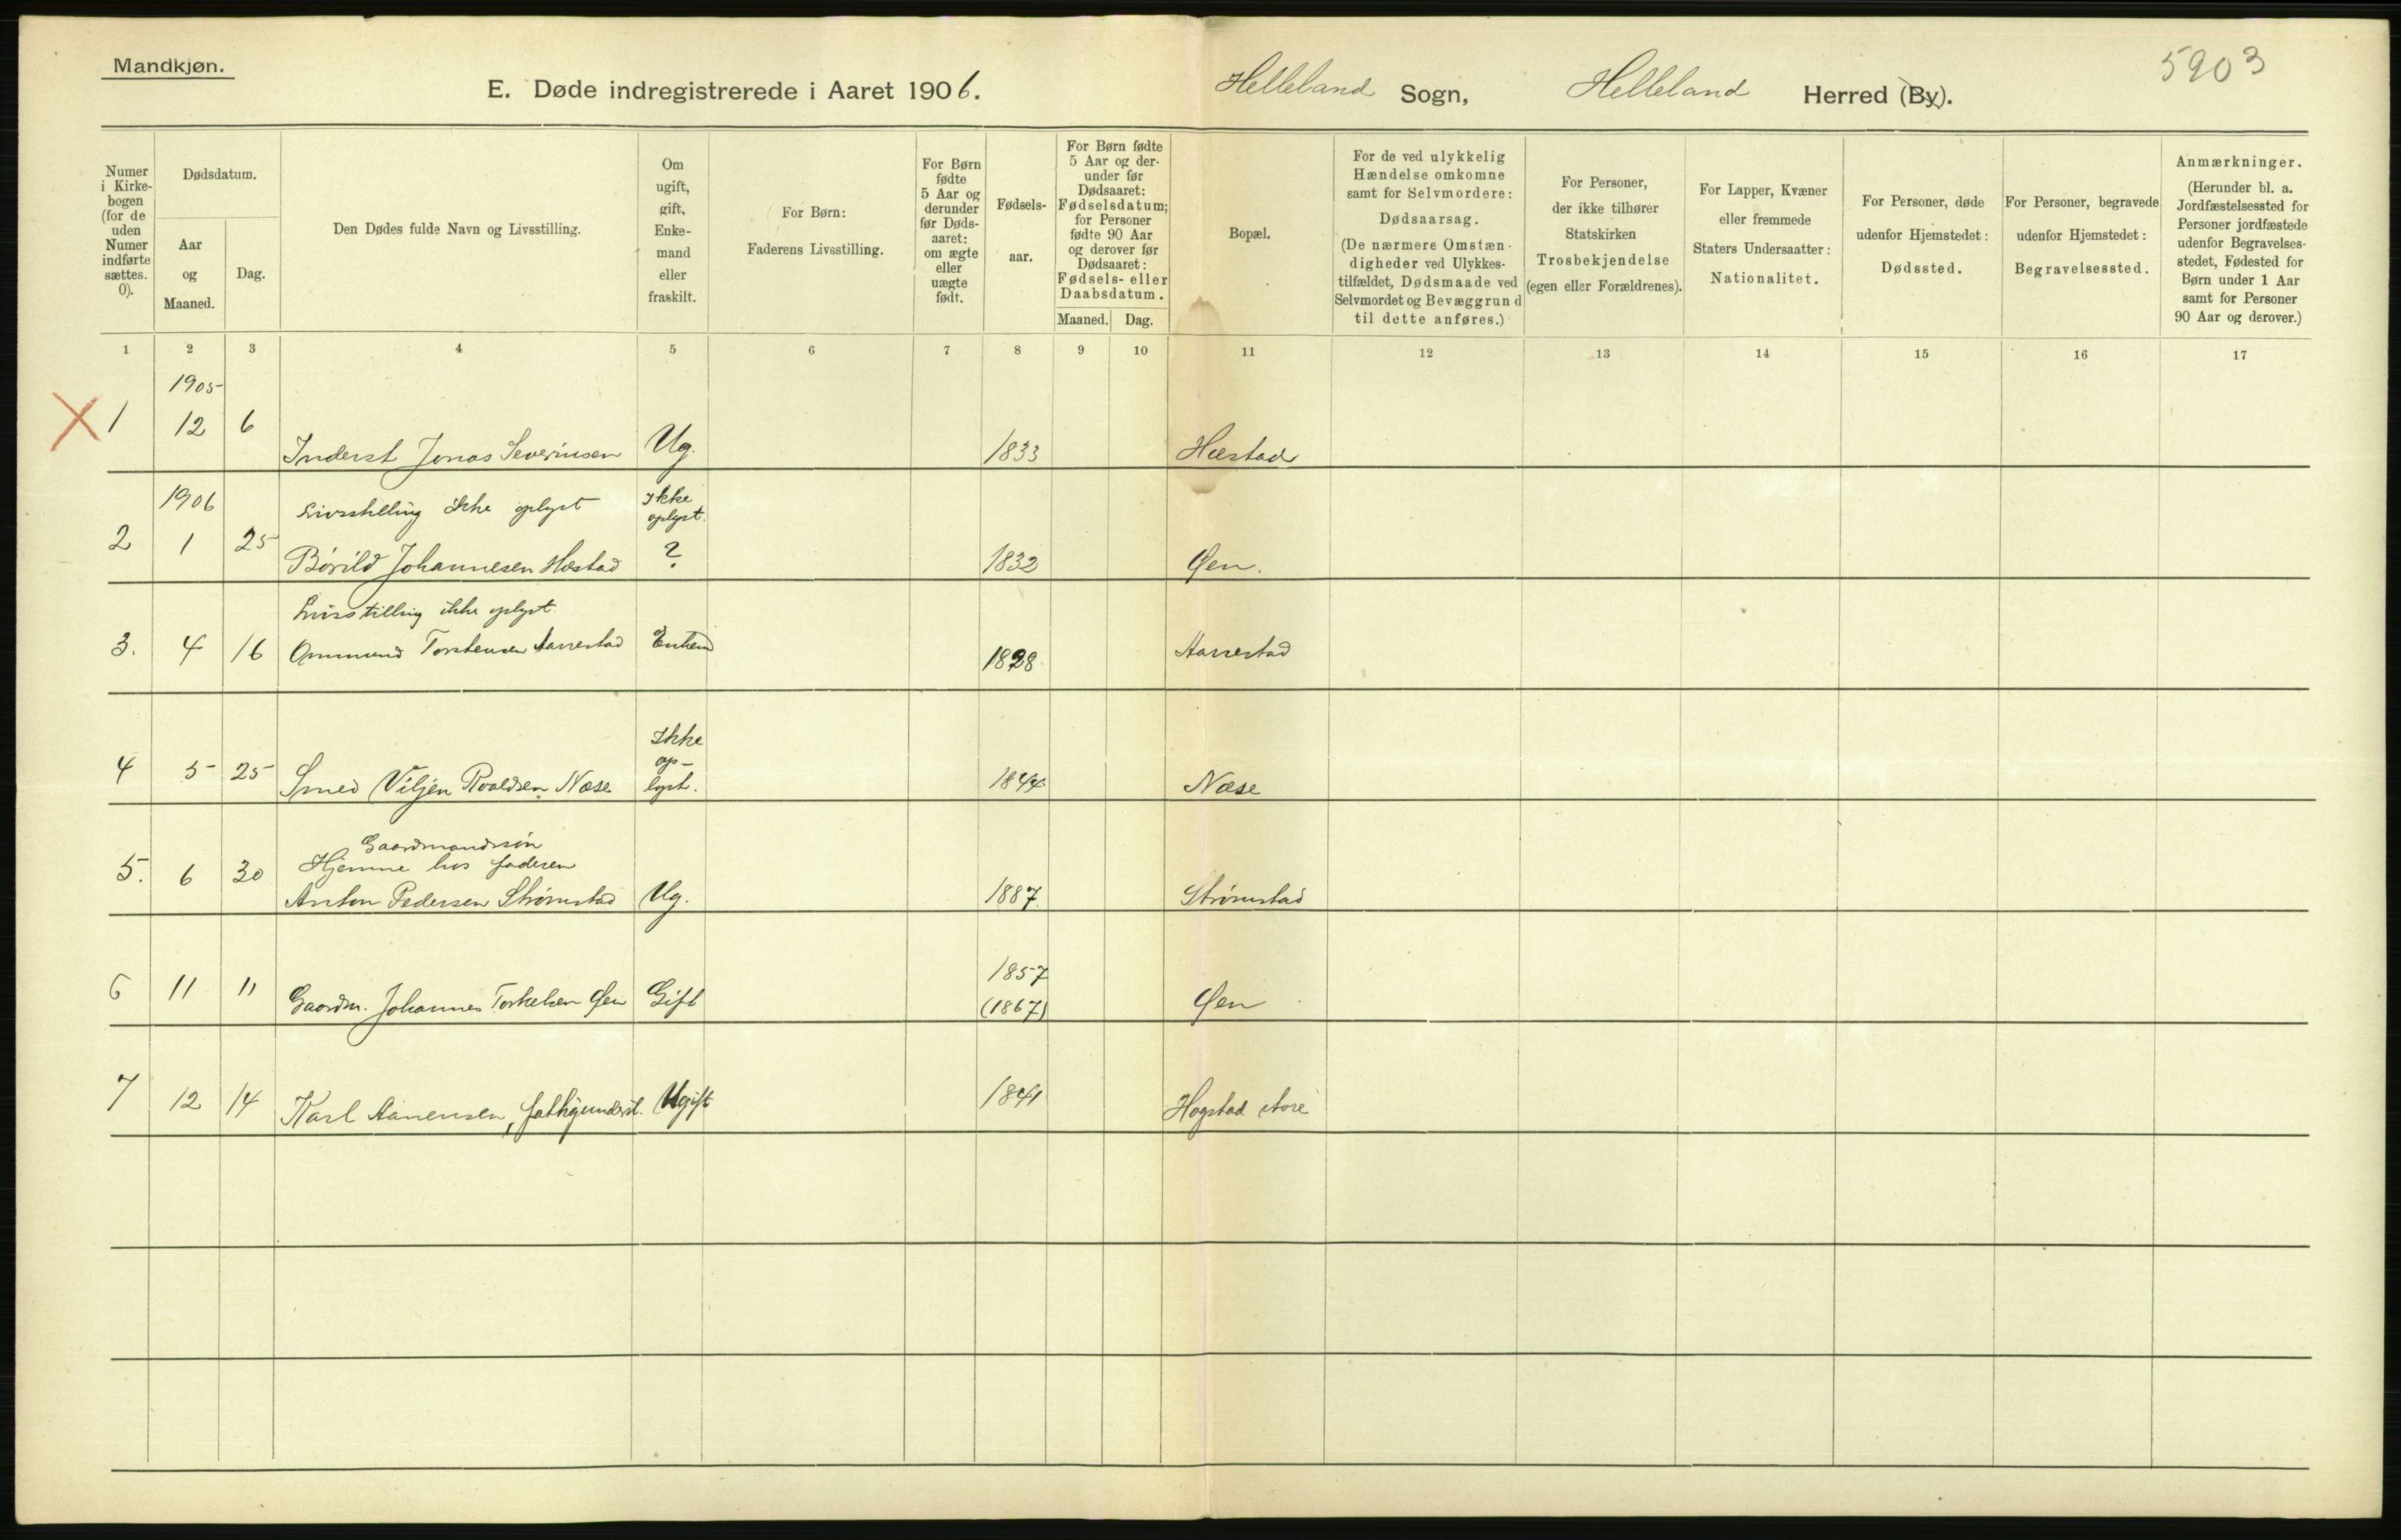 Mandkjøn.
E. Døde indregistrerede i Aaret 1906.
Helleland Sogn, Helleland Herred (By).
5903
Numer i Kirkebogen (for de uden Numer indførte sættes. 0).
Dødsdatum.
Aar og Maaned.
Dag.
Den Dødes fulde Navn og Livsstilling.
Om ugift, gift, Enkemand eller fraskilt.
For Børn: Faderens Livsstilling.
For Børn fødte 5 Aar og derunder før Dødsaaret: om ægte eller uægte født.
Fødselsaar.
For Børn fødte 5 Aar og derunder før Dødsaaret: Fødselsdatum; for Personer fødte 90 Aar og derover før Dødsaaret: Fødsels- eller Daabsdatum.
Maaned. Dag.
Bopæl.
For de ved ulykkelig Hændelse omkomne samt for Selvmordere: Dødsaarsag. (De nærmere Omstændigheder ved Ulykkestilfældet, Dødsmaade ved Selvmordet og Bevæggrund til dette anføres.)
For Personer, der ikke tilhører Statskirken Trosbekjendelse (egen eller Forældrenes).
For Lapper, Kvæner eller fremmede Staters Undersaatter: Nationalitet.
For Personer, døde udenfor Hjemstedet: Dødssted.
For Personer, begravede udenfor Hjemstedet: Begravelsessted.
Anmærkninger. (Herunder bl. a. Jordfæstelsessted for Personer jordfæstede udenfor Begravelsesstedet, Fødested for Børn under 1 Aar samt for Personer 90 Aar og derover.)
1 2 3 4 5 6 7 8 9 10 11 12 13 14 15 16 17
1905
1 12 6 Inderst Jonas Severinsen Ug. 1833 Hæstad
1906 Livsstilling ikke oplyst Ikke oplyst.
2 1 25 Børild Johannesen Hæstad ? 1832 Øen.
Livsstilling ikke oplyst.
3. 4 16 Ommund Torstensen Aarrestad Enkem 1828 Aarrestad
Ikke op-
4 5 25 Smed Viljen Roaldsen Næse lyst. 1844. Næse
Gaardmandssøn
Hjemme hos faderen
5. 6 30 Anton Pedersen Strømstad Ug. 1887. Strømstad
1857
6 11 11 Gaardm. Johannes Torkelsen Øen Gift (1867) Øen
7 12 14 Karl Aanensen, fattigunderst. Ugift 1841 Hogstad store